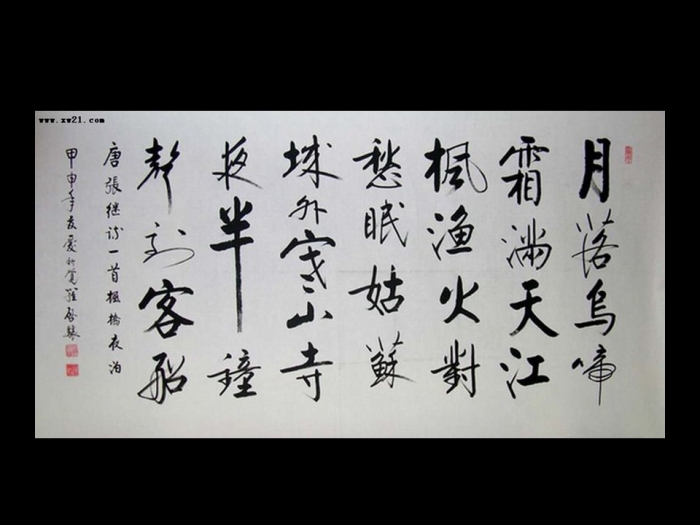 月落烏啼
霜滿天江
楓漁火對
愁眠姑蘇
城外寒山寺
夜半鐘
聲到客船
唐張继詩一首楓橋夜泊
甲申年
www.xw21.com